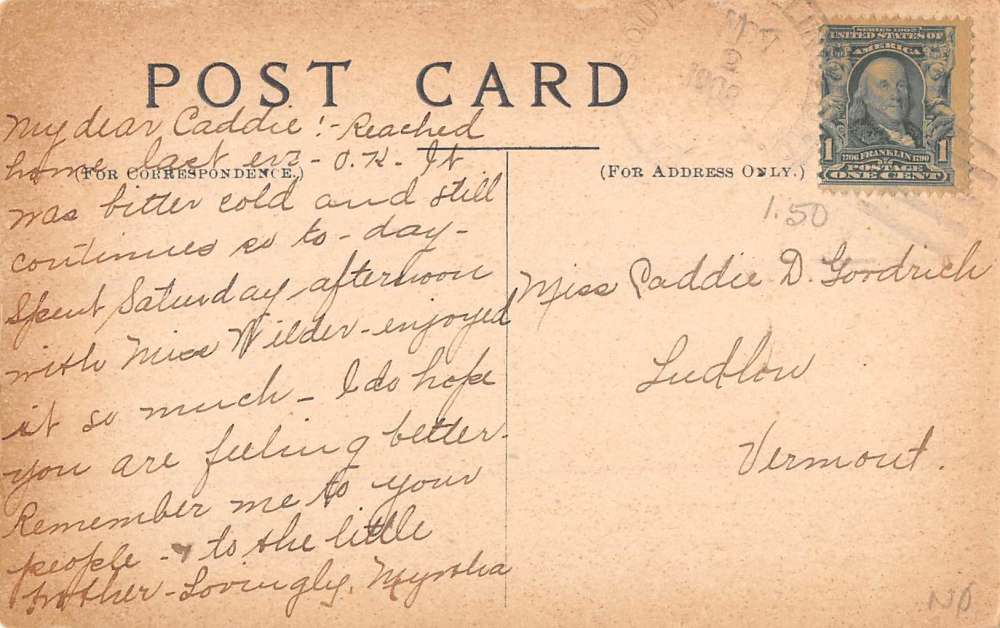 POST CARD
(FOR CORRESPONDENCE.)
(FOR ADDRESS ONLY.)
SERIES 1902
UNITED STATES OF
AMERICA
1 1706 FRANKLIN 1790 1
POSTAGE
ONE CENT
2
1908
1.50
My dear Caddie! - Reached
home last eve - O.K. It
was bitter cold and still
continues so to-day -
Spent Saturday afternoon
with Miss Wilder - enjoyed
it so much - I do hope
you are feeling better -
Remember me to your
people - to the little
brother - Lovingly, Myrtha
Miss Caddie D. Goodrich
Ludlow
Vermont.